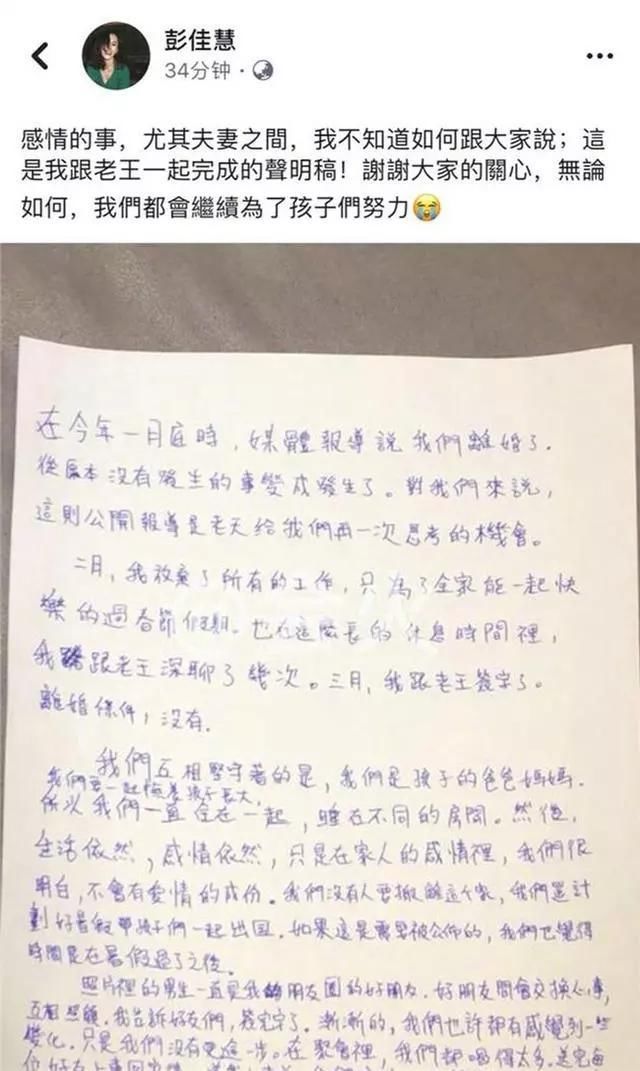 彭佳慧
34分钟 ·
感情的事，尤其夫妻之間，我不知道如何跟大家說；這
是我跟老王一起完成的聲明稿！謝謝大家的關心，無論
如何，我們都會繼續為了孩子們努力😭
在今年一月底時，媒體報導說我們離婚了.
從原本沒有發生的事變成發生了。對我們來說，
這則公開報導是老天給我們再一次思考的機會。
二月，我放棄了所有的工作，只為了全家能一起快
樂的過春節假期. 也在這麼長的休息時間裡，
我跟老王深聊了幾次。三月，我跟老王簽字了。
離婚條件；沒有.
我們互相堅守著的是，我們是孩子的爸爸媽媽.
我們要一起陪養孩子長大，
所以我們一直住在一起，睡在不同的房間。然後，
生活依然，感情依然，只是在家人的感情裡，我們很
明白，不會有愛情的成份。我們沒有人要搬離這个家，我們還計
劃好暑假帶孩子們一起出国. 如果這是需要被公佈的，我們也覺得
時間是在暑假過了之後。
照片裡的男生一直是我朋友圈的好朋友. 好朋友間會交換心事，
互相照顧. 我告訴好友們，簽完字了. 漸漸的，我們也許都有感覺到一些
變化. 只是我們沒有更進一步。在聚會裡，我們都喝得太多.